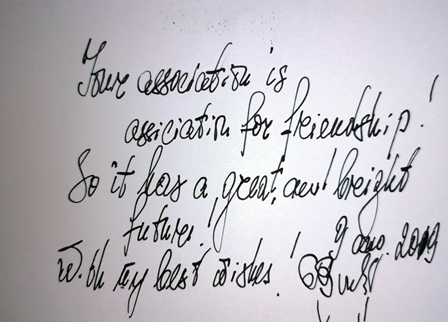 Your association is
assiciation for friendship!
So it has a great and breight
future!
With my best wishes!
9 2019